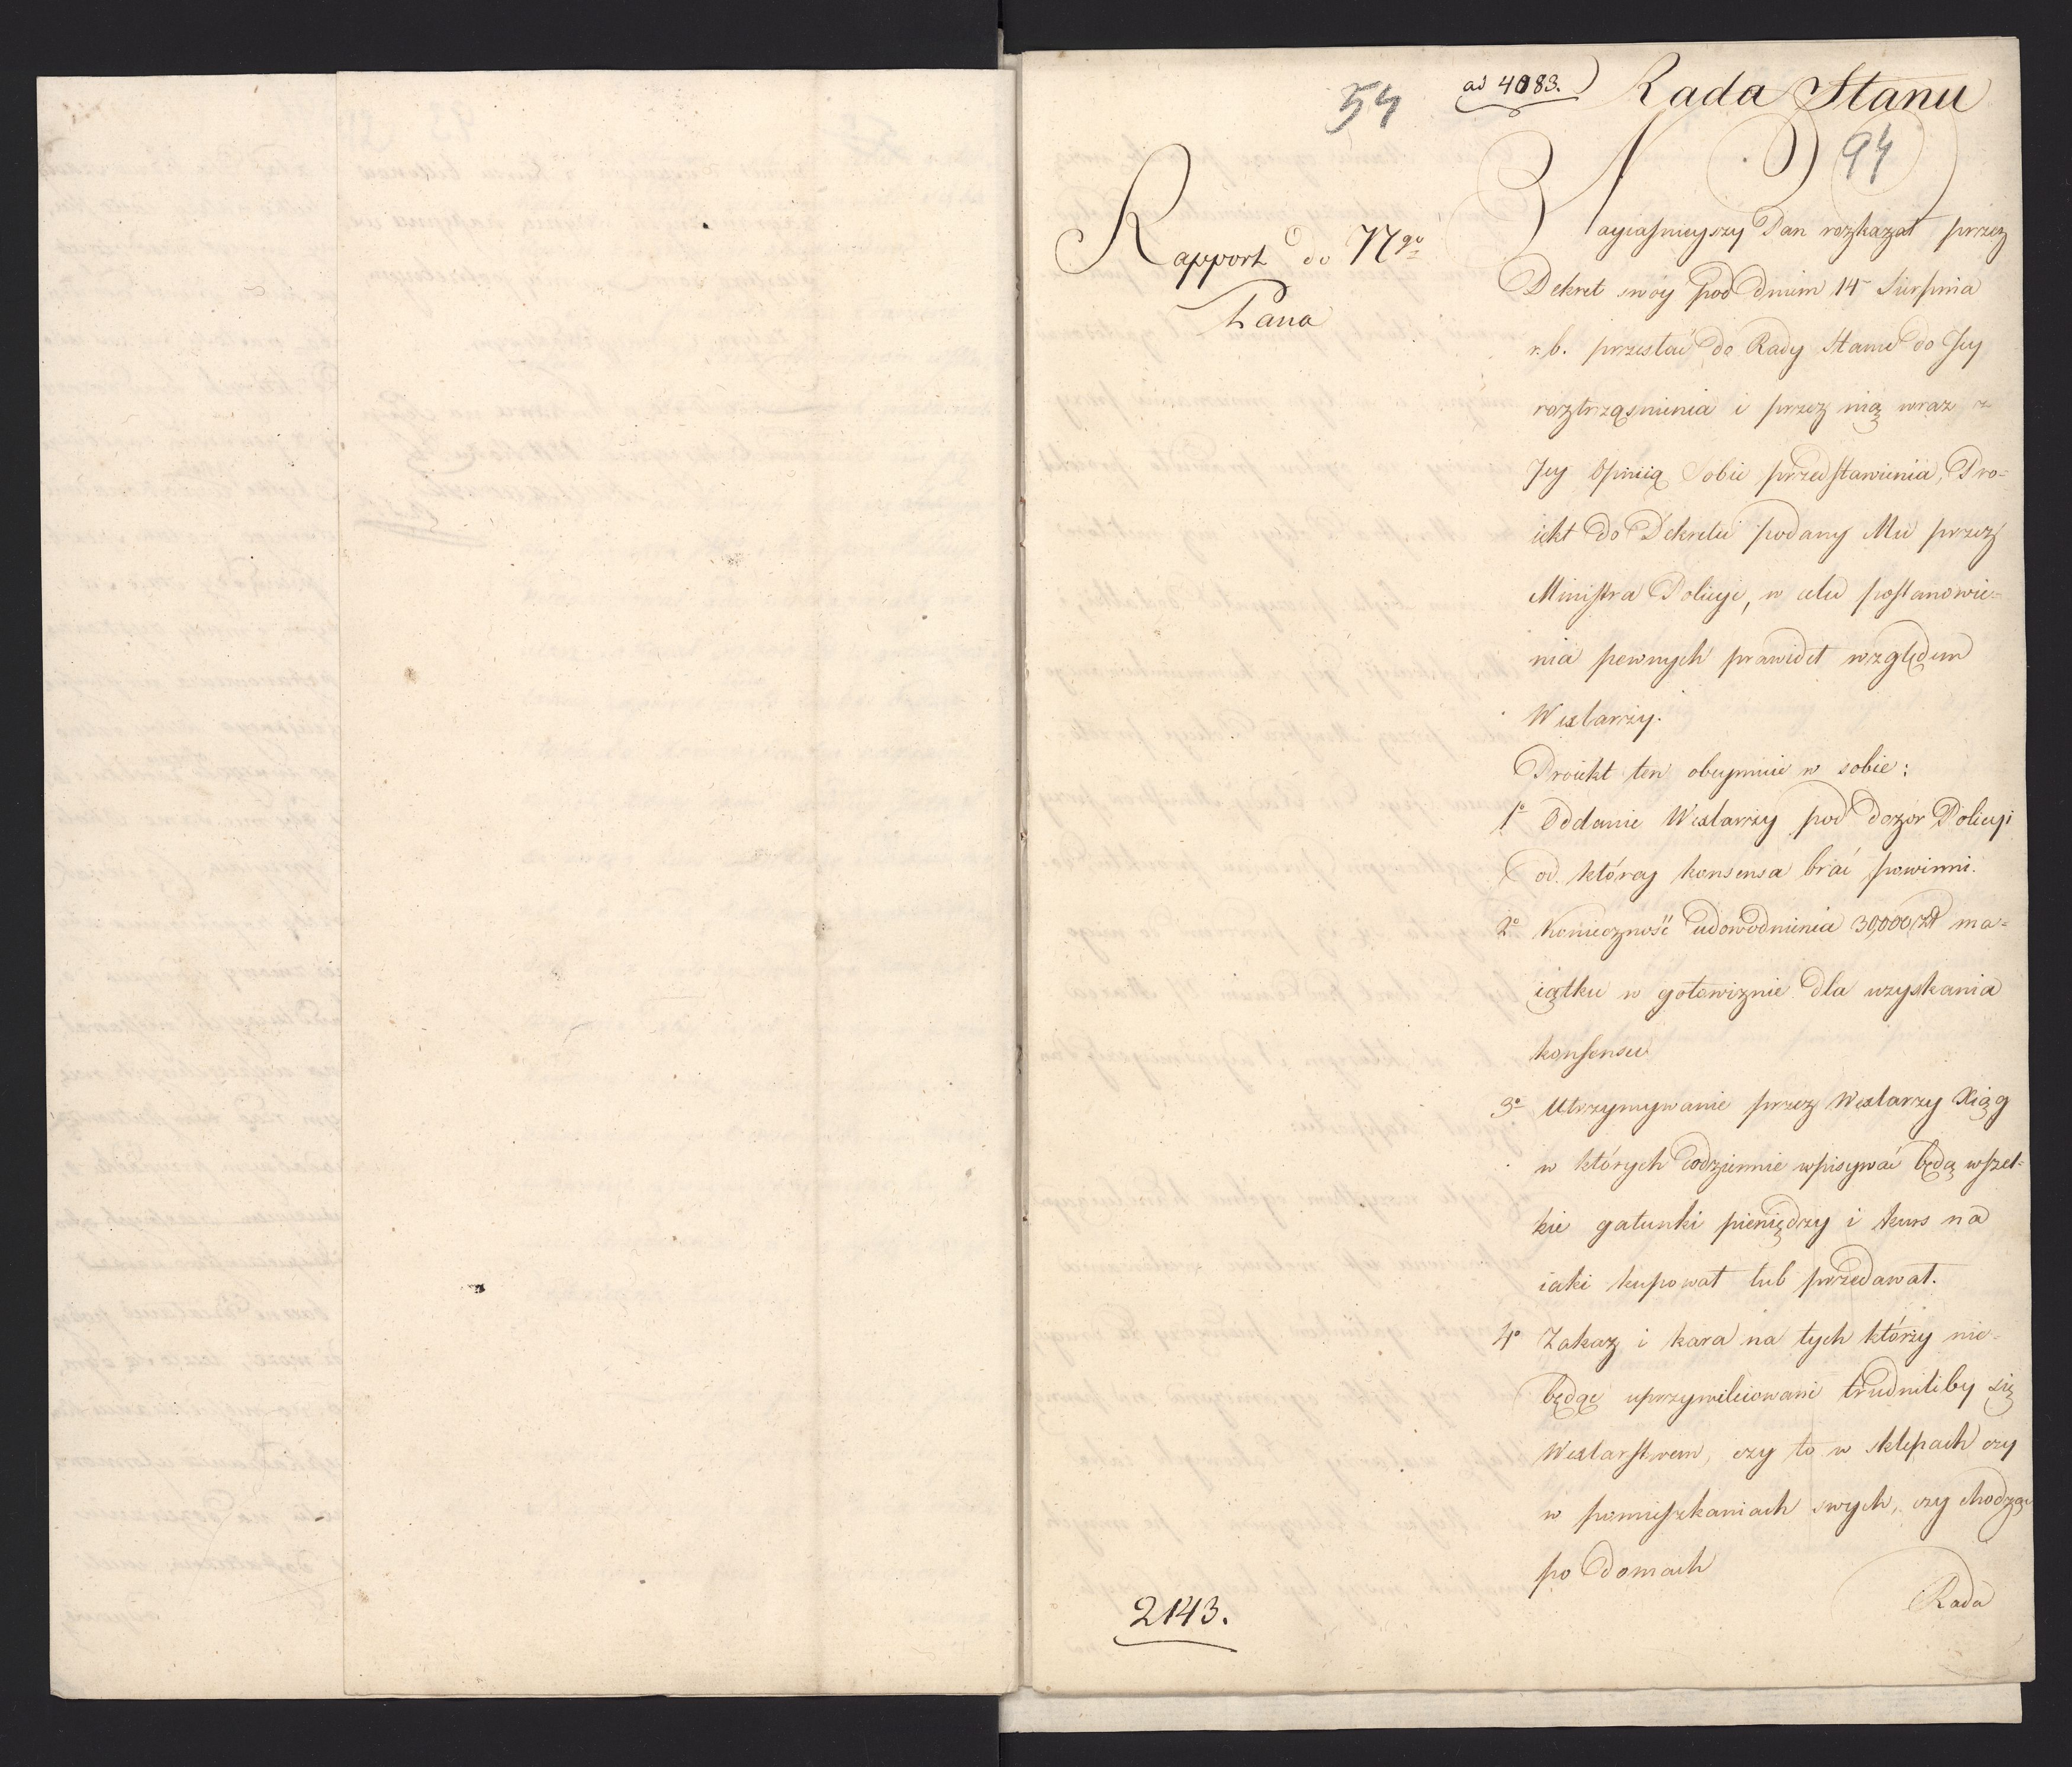 54
ad 4083.
Rada Stanu
94
Rapport do NNgo
Pana
Nayiaśnieyszy Pan rozkazał przez
Dekret swóy pod dniem 14 Sierpnia
r. b. przesłać do Rady Stanu do Jey
roztrząśnienia i przez nią wraz z
Jey Opinią Sobie przedstawienia, Pro=
iekt do Dekretu podany Mu przez
Ministra Policyi, w celu postanowie=
nia pewnych prawideł względem
Wexlarzy.
Proiekt ten obeymuie w sobie:
1o Oddanie Wexlarzy pod dozor Policyi
od któréy konsensa brać powinni.
2o Konieczność udowodnienia 30,000 zł ma=
iątku w gotowiznie dla uzyskania
konsensu
3o Utrzymywanie przez Wexlarzy Xiąg
w których codziennie wpisywać będą wszel=
kie gatunki pieniędzy i kurs na
iaki kupował lub przedawał.
4o Zakaz i kara na tych którzy nie=
będąc uprzywileiowani trudniliby się
Wexlarstwem, czy to w sklepach czy
w pomieszkaniach swych, czy chodząc
po domach
Rada
2143.